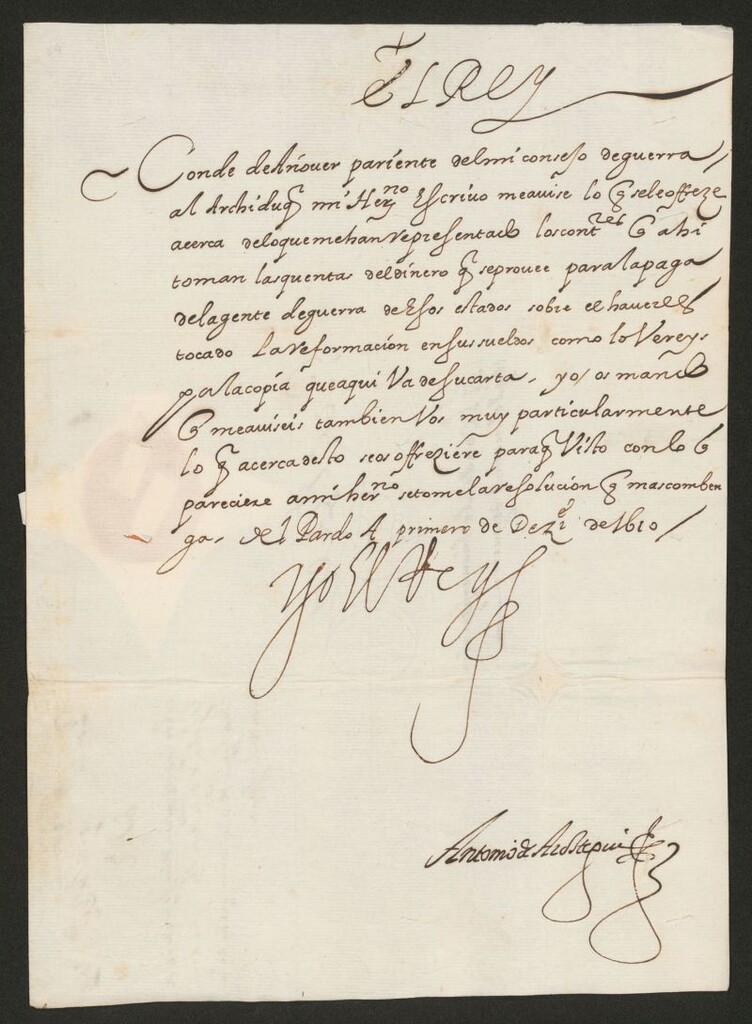 El Rey
Conde de Añover pariente del mi consejo de guerra /
al Archiduq mi Herno Escrivo me avise lo q se le offreze
acerca de lo que me han representado los contres q ahi
toman las quentas del dinero q se provee para la paga
de la gente de guerra de Esos estados sobre el haverles
tocado La reformacion en sus sueldos como lo Vereys
por la copia que aqui Va de su carta, yo os mando
q me aviseis tambien Vos muy particularmente
lo q acerca desto se os offreziere para q Visto con lo q
pareciere a mi herno se tome la resolucion q mas comben
ga, del Pardo A primero de Deze de 1610 /
Yo El Rey
Antonio de Arostegui